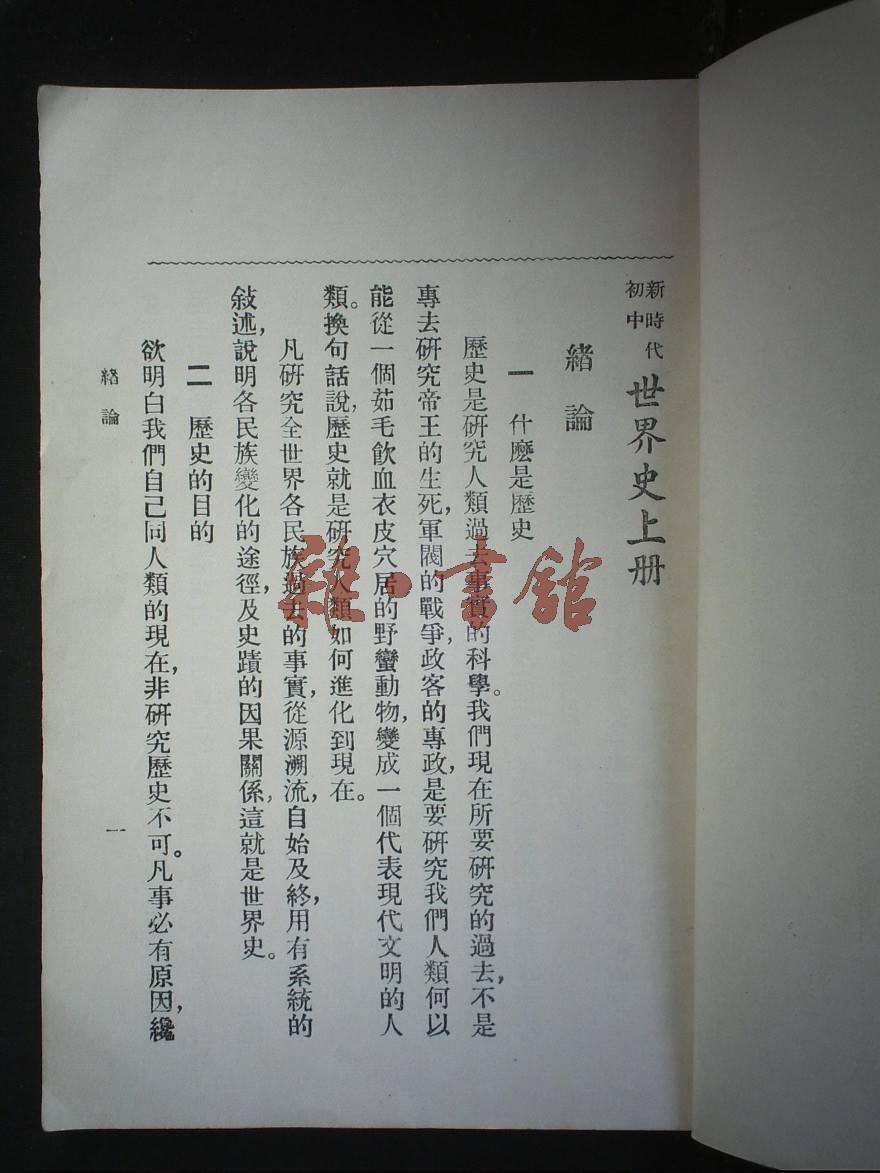 新時代
初中
世界史上册
緒論
一 什麼是歷史
歷史是研究人類過去事質的科學。我們現在所要研究的過去,不是
專去研究帝王的生死,軍閥的戰爭,政客的專政,是要研究我們人類何以
能從一個茹毛飲血衣皮穴居的野蠻動物,變成一個代表現代文明的人
類。換句話說,歷史就是研究人類如何進化到現在。
凡研究全世界各民族過去的事實,從源溯流,自始及終,用有系統的
敍述,說明各民族變化的途徑,及史蹟的因果關係,這就是世界史。
二 歷史的目的
欲明白我們自己同人類的現在,非研究歷史不可。凡事必有原因,纔
緒論
一
雜·書館